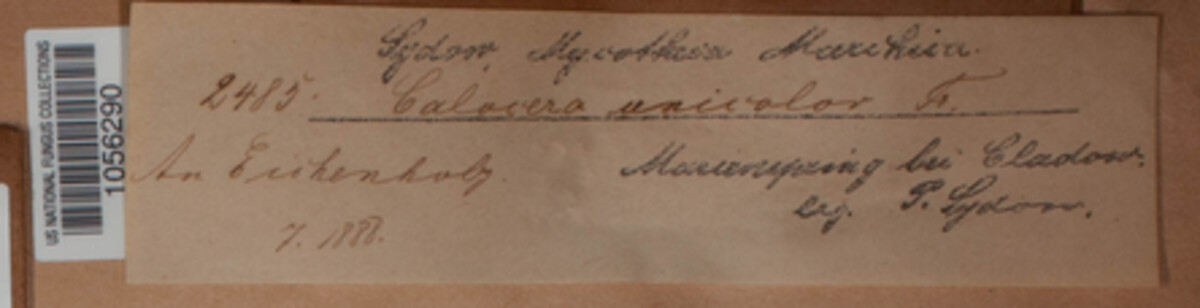 US NATIONAL FUNGUS COLLECTIONS
1056290
Sydow, Mycotheca Marchica.
2485. Calocera unicolor Fr.
An Eichenholz.
Marienspring bei Cladow.
leg. P. Sydow.
7. 1888.